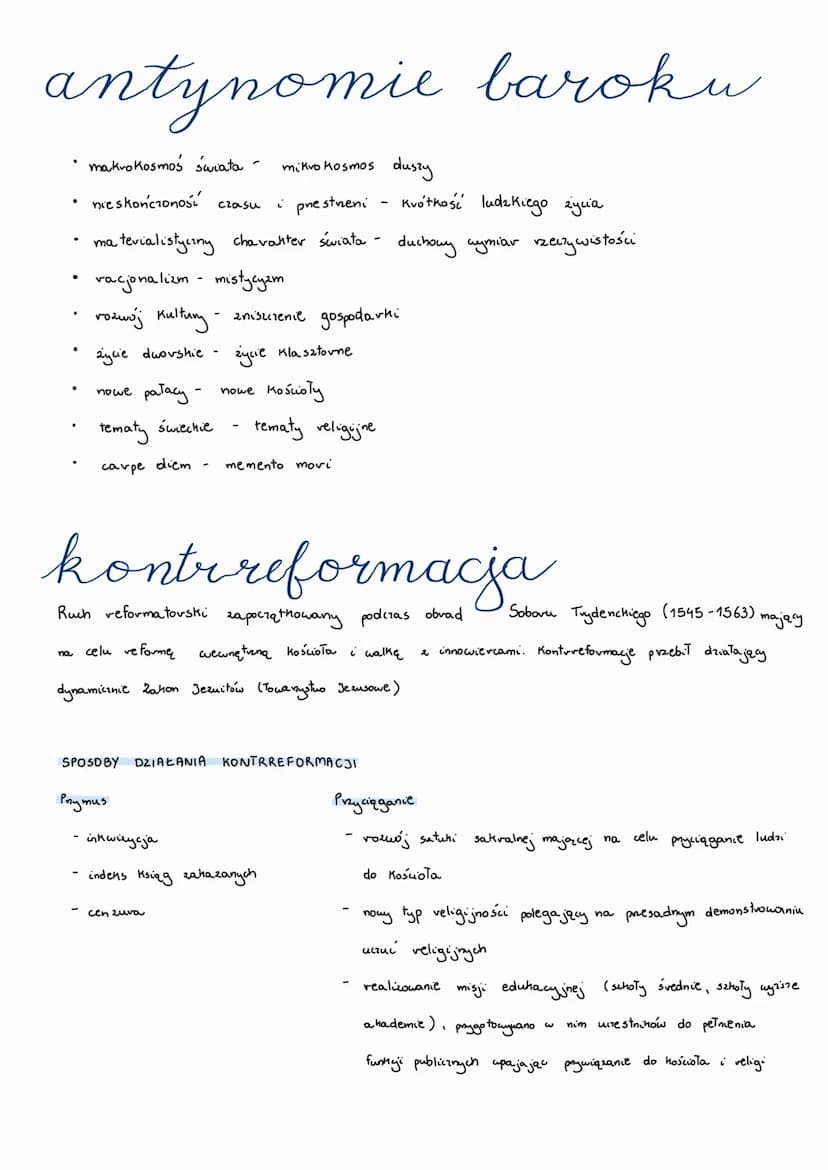 antynomie baroku
• makrokosmos świata - mikrokosmos duszy
• nieskończoność czasu i przestrzeni - krótkość ludzkiego życia
• materialistyczny charakter świata - duchowy wymiar rzeczywistości
• racjonalizm - mistycyzm
• rozwój kultury - zniszczenie gospodarki
• życie dworskie - życie klasztorne
• nowe pałacy - nowe kościoły
• tematy świeckie - tematy religijne
• carpe diem - memento mori
kontrreformacja
Ruch reformatorski zapoczątkowany podczas obrad Soboru Trydenckiego (1545-1563) mający
na celu reformę wewnętrzną kościoła i walkę z innowiercami. Kontrreformację przebił działający
dynamicznie Zakon Jezuitów (Towarzystwo Jezusowe)
SPOSOBY DZIAŁANIA KONTRREFORMACJI
Przymus
- inkwizycja
- indeks ksiąg zakazanych
- cenzura
Przyciąganie
- rozwój sztuki sakralnej mającej na celu przyciąganie ludzi
do kościoła
- nowy typ religijności polegający na przesadnym demonstrowaniu
uczuć religijnych
- realizowanie misji edukacyjnej (szkoły średnie, szkoły wyższe
akademie), przygotowywano w nim uczestników do pełnienia
funkcji publicznych wpajając przywiązanie do kościoła i religi